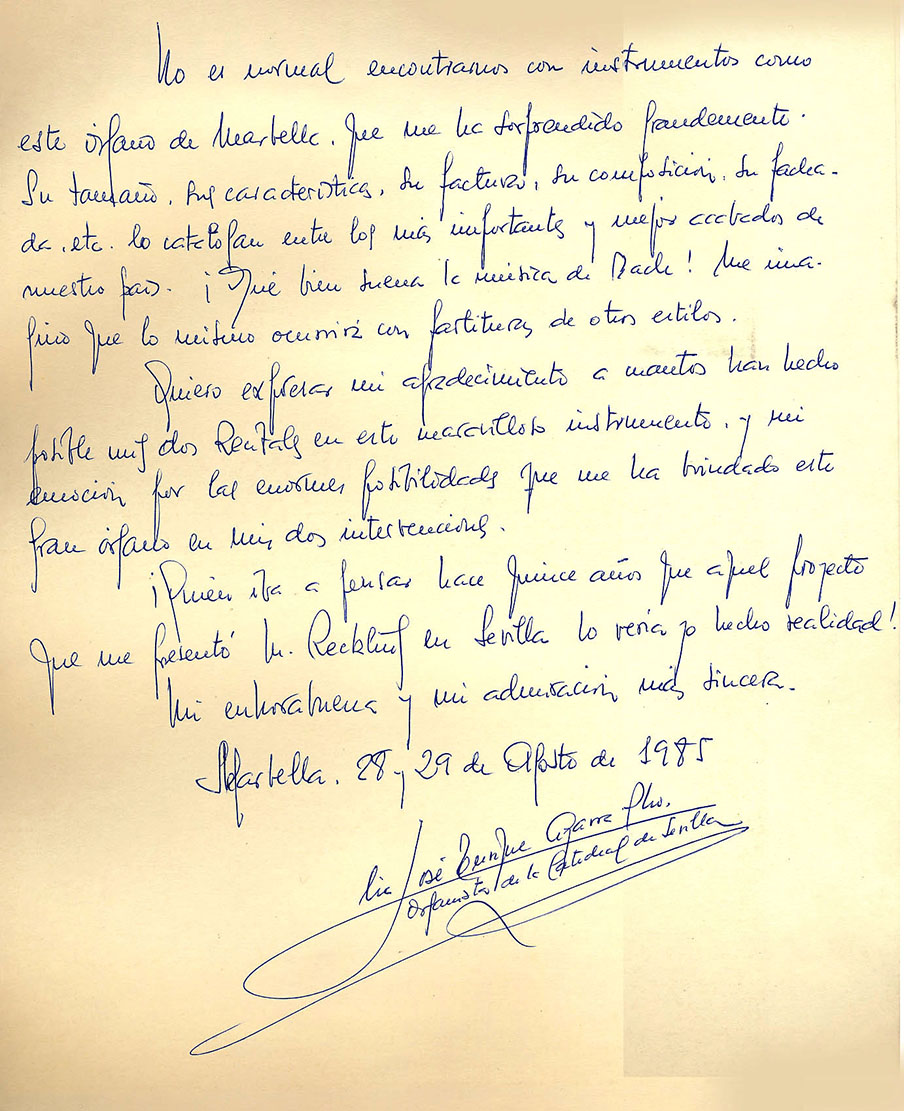 No es normal encontrarnos con instrumentos como
este órgano de Marbella, que me ha sorprendido grandemente.
Su tamaño, sus característica, su factura, su composición, su facha-
da, etc. lo catalogan entre los más importantes y mejor acabados de
nuestro país. ¡Qué bien suena la música de Bach! Me ima-
gino que lo mismo ocurrirá con partituras de otros estilos.
Quiero expresar mi agradecimiento a cuantos han hecho
posible mis dos Recitals en este maravilloso instrumento, y mi
emoción por las enormes posibilidades que me ha brindado este
gran órgano en mis dos intervenciones.
¡Quién iba a pensar hace quince años que aquel proyecto
que me presentó Mr. en Sevilla lo vería yo hecho realidad!
Mi enhorabuena y mi admiración más sincera.
Marbella, 28 y 29 de Agosto de 1985
José Enrique Ayarra Pbro.
Organista de la Catedral de Sevilla